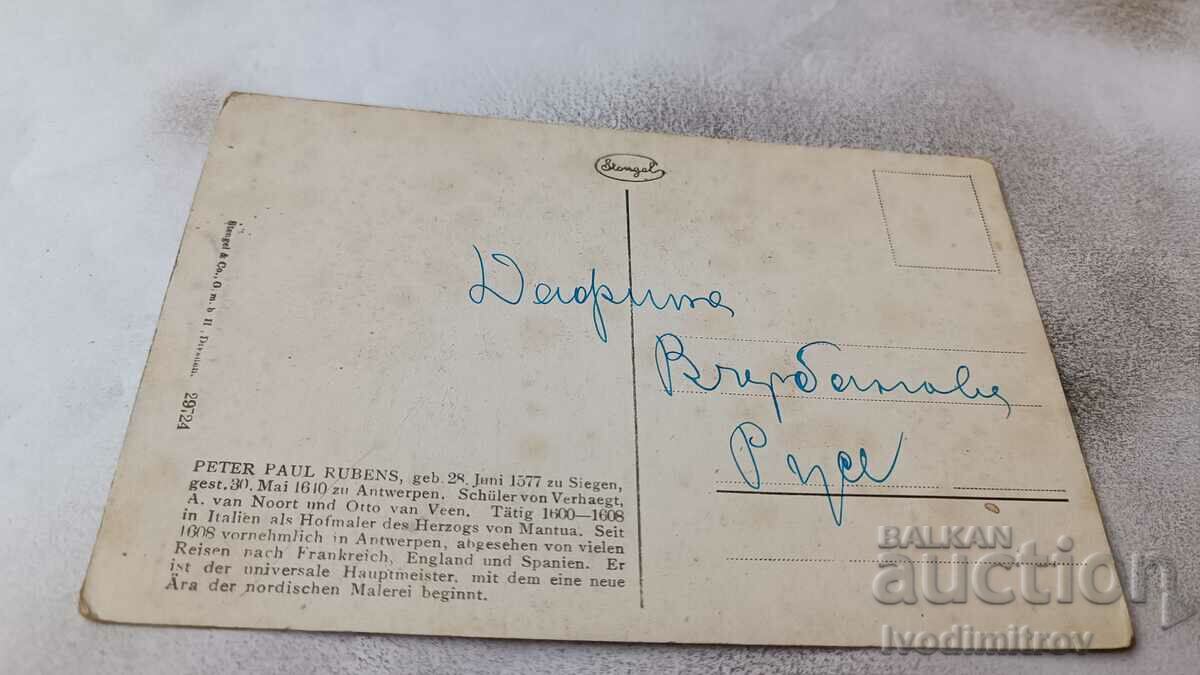 Stengel
Stengel & Co., G. m. b H., Dresden. 29724
Дафина
Вчербанова
Русе
PETER PAUL RUBENS, geb. 28. Juni 1577 zu Siegen,
gest. 30. Mai 1640 zu Antwerpen. Schüler von Verhaegt,
A. van Noort und Otto van Veen. Tätig 1600—1608
in Italien als Hofmaler des Herzogs von Mantua. Seit
1608 vornehmlich in Antwerpen, abgesehen von vielen
Reisen nach Frankreich, England und Spanien. Er
ist der universale Hauptmeister, mit dem eine neue
Ära der nordischen Malerei beginnt.
BALKAN
auction
Ivodimitrov